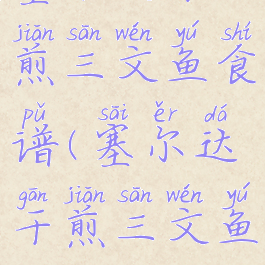 jiān sān wén yú shí
煎三文鱼食
pǔ sāi ěr dá
谱(塞尔达
gān jiān sān wén yú
干煎三文鱼